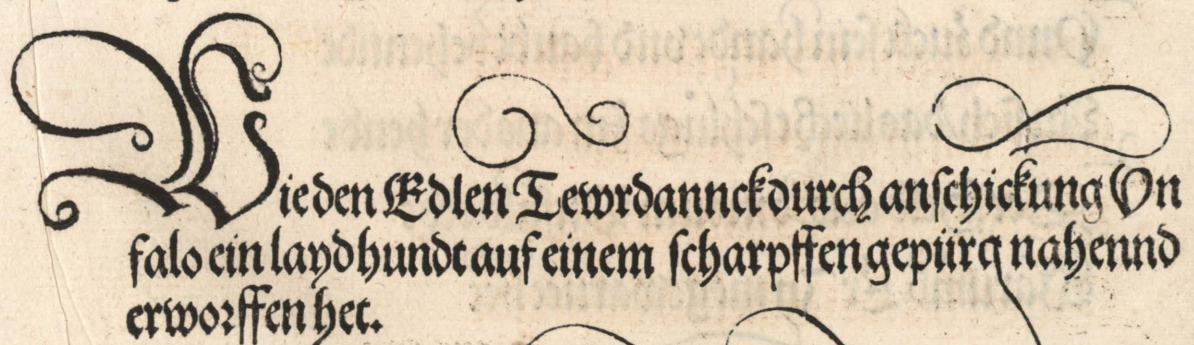 Wie den Edlen Tewrdannck durch anſchickung Vn
falo ein laydhundt auf einem ſcharpffen gepürg nahennd
erworffen het.